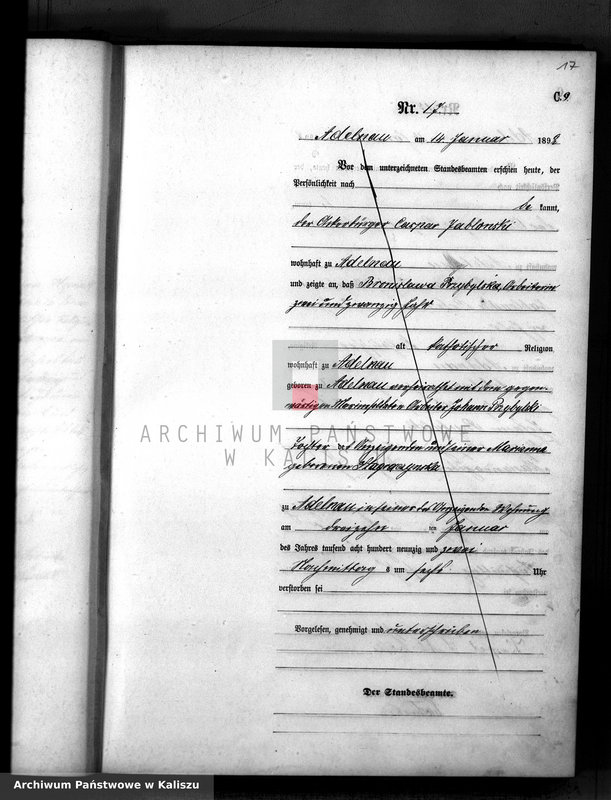 17
C. 9
Nr. 17
Adelnau am 14 Januar 1892
Vor dem unterzeichneten Standesbeamten erschien heute, der
Persönlichkeit nach
be kannt,
der Ackerbürger Caspar Jablonski
wohnhaft zu Adelnau
und zeigte an, daß Bronislawa Przybylska, Arbeiterin
zwei und zwanzig Jahr
alt katholischer Religion
wohnhaft zu Adelnau
geboren zu Adelnau verheirathet mit dem gegen-
wärtigen Arbeiter Johann Przybylski
Tochter des Anzeigenden und seiner Marianna
geborenen
zu Adelnau in seiner des Anzeigenden Wohnung
am dreizehn ten Januar
des Jahres tausend acht hundert neunzig und zwei
Nachmittag s um sechs Uhr
verstorben sei
Vorgelesen, genehmigt und unterschrieben
Der Standesbeamte.
ARCHIWUM PAŃSTWOWE
W KALISZU
Archiwum Państwowe w Kaliszu